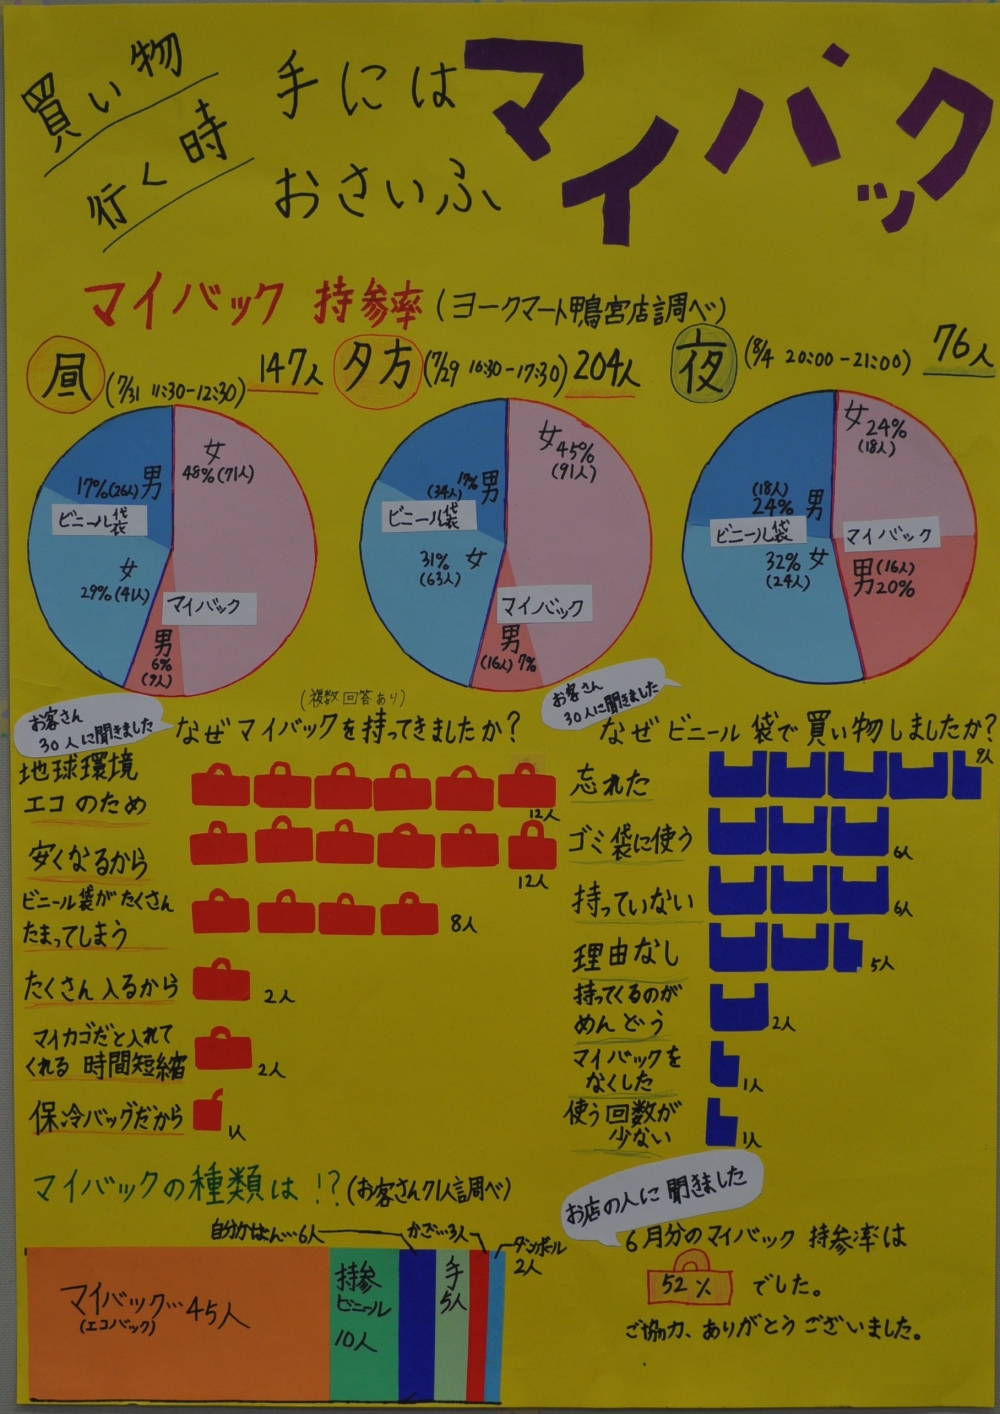 買い物
行く時
手には
おさいふ
マイバック
マイバック 持参率 (ヨークマート鴨宮店調べ)
昼 (7/31 11:30-12:30) 147人
夕方 (7/29 16:30-17:30) 204人
夜 (8/4 20:00-21:00) 76人
女
48% (71人)
17% (26人) 男
ビニール袋
女
29% (41人)
マイバック
男
6%
(9人)
女 45%
(91人)
17% 男
(34人)
ビニール袋
31% 女
(63人)
マイバック
男
(16人) 7%
女 24%
(18人)
(18人)
24% 男
ビニール袋
マイバック
32% 女
(24人)
男 (16人)
20%
お客さん
30人に聞きました
(複数回答あり)
なぜマイバックを持ってきましたか?
地球環境
エコのため
12人
安くなるから
12人
ビニール袋がたくさん
たまってしまう
8人
たくさん入るから
2人
マイカゴだと入れて
くれる 時間短縮
2人
保冷バッグだから
1人
お客さん
30人に聞きました
なぜビニール袋で買い物しましたか?
忘れた
9人
ゴミ袋に使う
6人
持っていない
6人
理由なし
5人
持ってくるのが
めんどう
2人
マイバックを
なくした
1人
使う回数が
少ない
1人
マイバックの種類は!? (お客さん71人調べ)
自分かばん…6人
かご…3人
ダンボール
2人
マイバック…45人
(エコバック)
持参
ビニール
10人
手
5人
お店の人に聞きました
6月分のマイバック 持参率は
52% でした。
ご協力、ありがとうございました。